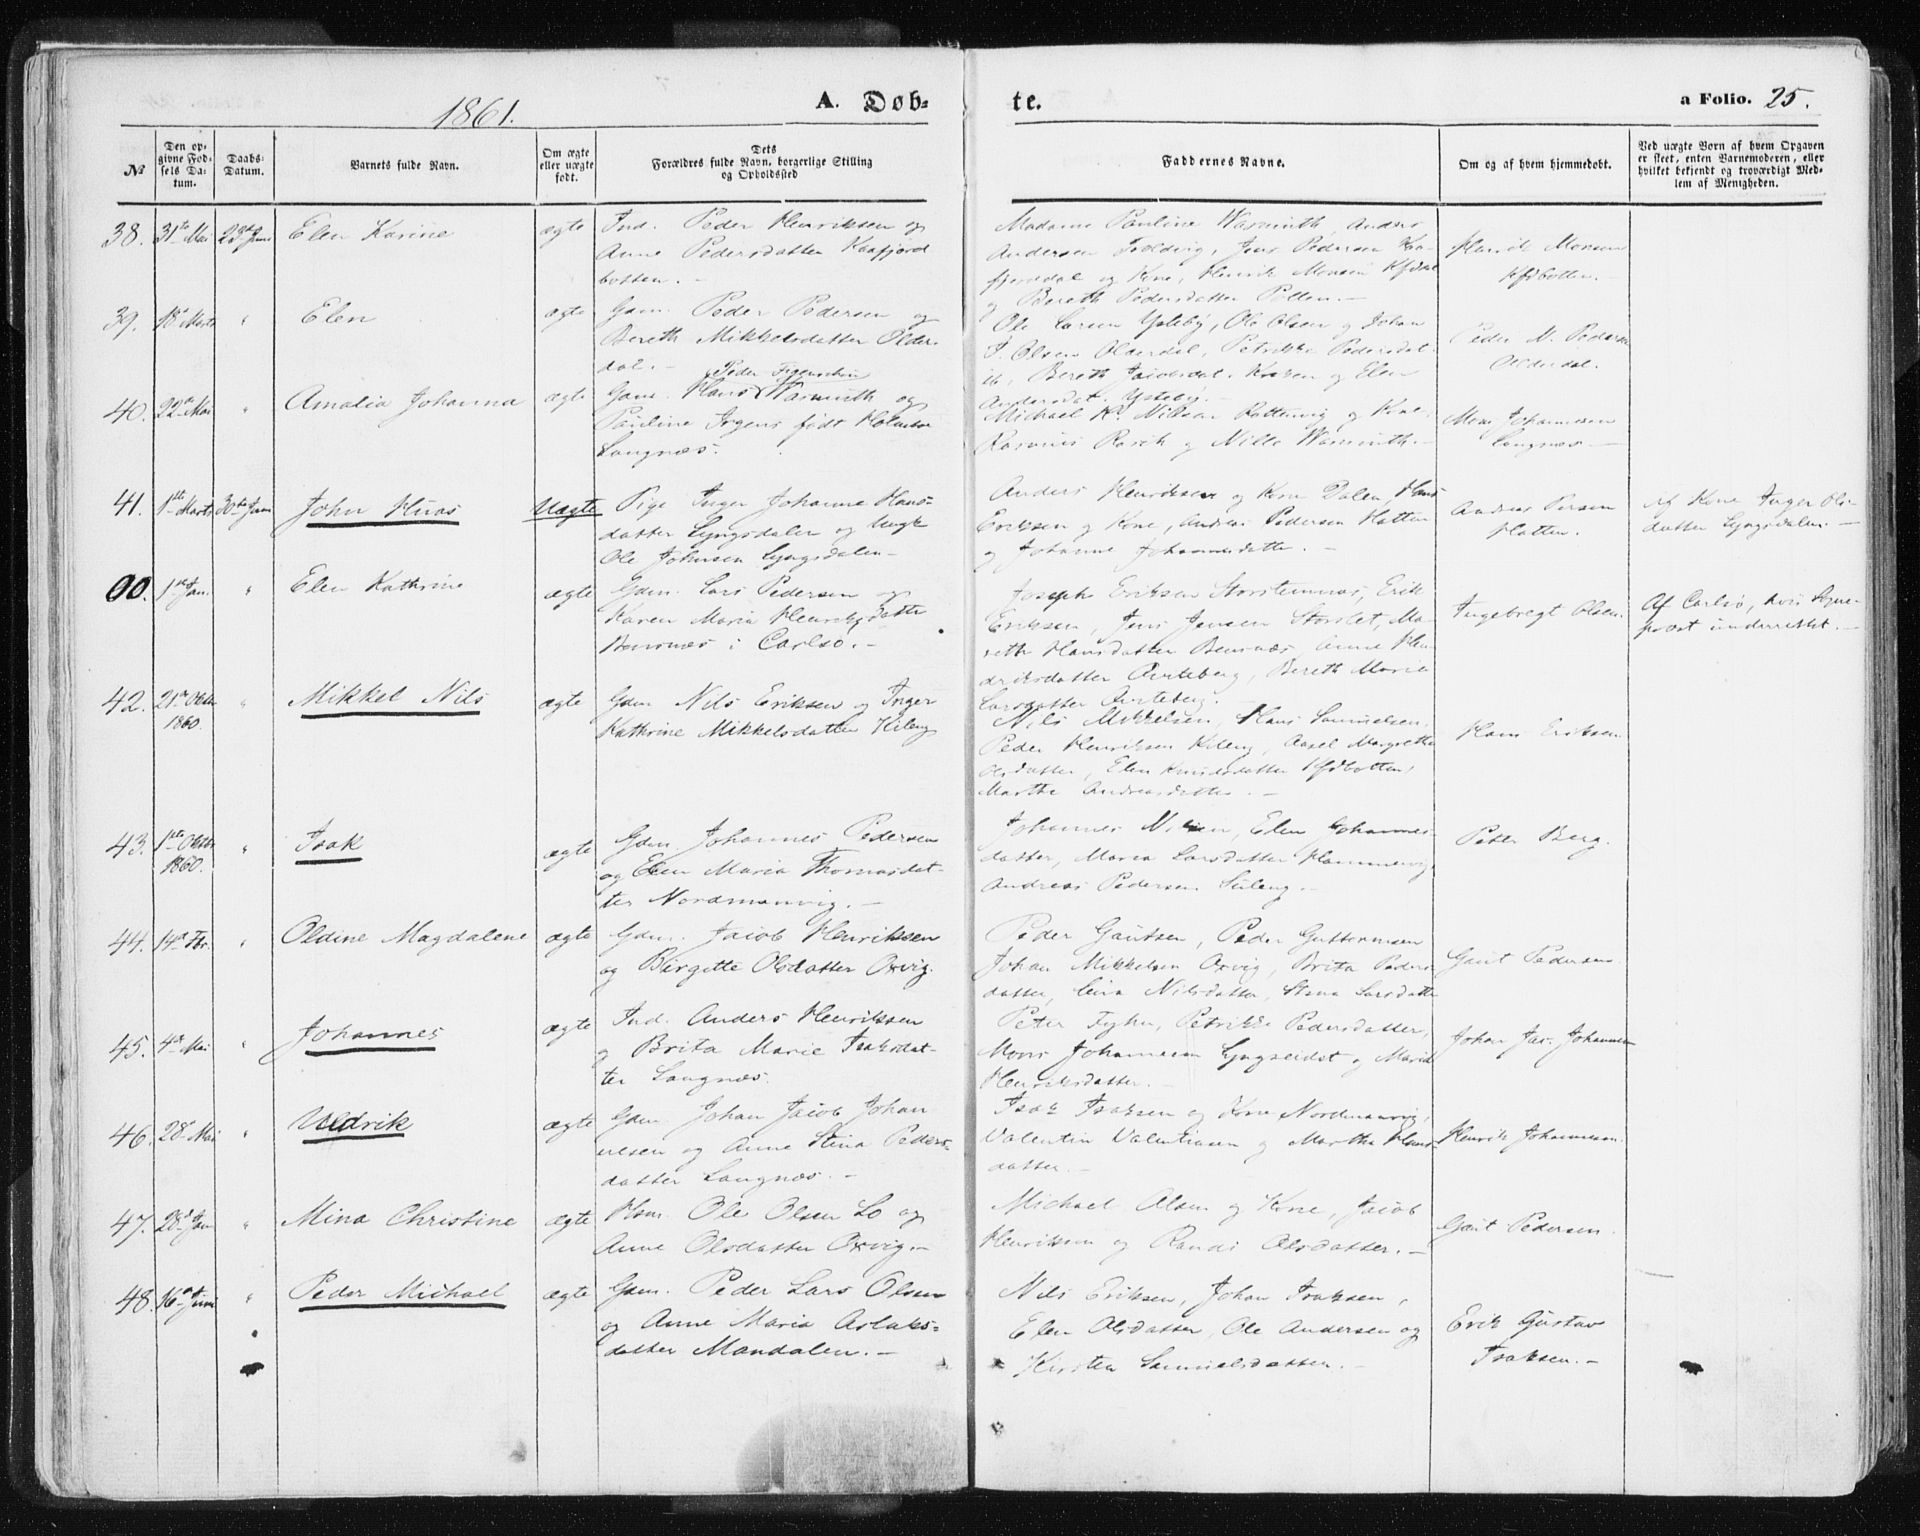 1861.
A. Døb=
te.
a Folio. 25.
№
Den op-
givne Fød-
sels Da-
tum.
Daabs-
Datum.
Barnets fulde Navn.
Om ægte
eller uægte
født.
Dets
Forældres fulde Navn, borgerlige Stilling
og Opholdssted
Faddernes Navne.
Om og af hvem hjemmedøbt.
Ved uægte Børn af hvem Opgaven
er skeet, enten Barnemoderen, eller
hvilket bekjendt og troværdigt Med-
lem af Menigheden.
38. 31te Mai 23de Juni Elen Karine ægte
Ind. Peder Henriksen og
Anne Pedersdatter Kaafjord
botten. —
Madame Pauline Warmuth, Anders
Andersen Joldvig, Jens Pedersen Kaa-
fjorddal og Kone, Henrik Monsen Kfjdal
og Bereth Pedersdatter Pollen. —
Henrik Monsen
Kfjdbotten. —
39. 18de Marts " Elen ægte
Gdm. Peder Pedersen og
Bereth Mikkelsdatter Older-
dal. —
Ole Larsen Ysteby, Ole Olsen og Johan
J. Olsen Olderdal, Petrikke Pedersdat-
Bereth Jacobsdat. og Elen
Andersdat. Ysteby. —
Peder N. Pedersen
Olderdal.
40. 22de Mai " Amalia Johanna ægte
Peder Figenschou
Gdm. Hans Warmuth og
Pauline Irgens født Holmboe
Langnæs.
Michael K. Nilsen Rottenvig og Kone,
Rasmus Rasch og Nille Warmuth. —
Mons Johannesen
Langnæs —
41. 1ste Marts 30te Juni John Huas Uægte
Pige Inger Johanne Hans-
datter Lyngsdalen og Ungk
Ole Johnsen Lyngsdalen —
Anders Henriksen og Kone Dalen, Hans
Eriksen og Kone, Andreas Pedersen Hatten
og Johanne Johannesdatter. —
Andreas Persen
Hatten.
Af Kone Inger Ols-
datter Lyngsdalen. —
00. 1ste Jan. " Elen Kathrine ægte
Gdm. Lars Pedersen og
Karen Maria Henriksdatter
i Carlsø. —
Joseph Eriksen Storsteinnæs, Erik
Eriksen, Jens Jensen Storslet, Ma-
reth Hansdatter Bensnæs, Anne Hen-
driksdatter, Bereth Maria
Larsdatter
Ingebregt Olsen
Af Carlsø, hvis Sogne-
præst underrettet. —
42. 21de Oktbr 1860. " Mikkel Nils ægte
Gdm. Nils Eriksen og Inger
Kathrine Mikkelsdatter Kileng
Nils Mikkelsen, Hans Samuelsen
Peder Henriksen Kileng, Aasel Margrethe
Olsdatter, Elen Knudsdatter Kfjdbotten,
Marthe Andreasdatter. —
Hans Eriksen
43. 1ste Oktbr 1860. " Isak ægte
Gdm. Johannes Pedersen
og Elen Maria Thomasdat-
ter Nordmanvig. —
Johannes Nilsen, Elen Johannes-
datter, Maria Larsdatter Hammervig
Andreas Pedersen Lüleng. —
Peter Berg.
44. 14de Fbr. " Oldine Magdalene ægte
Gdm. Jacob Henriksen
og Birgitte Olsdatter Oxvig.
Peder Gautsen, Peder Guttormsen
Johan Mikkelsen Oxvig, Brita Peders-
datter, Nilsdatter, Stina Larsdatter
Gaut Pedersen.
45. 4de Mai " Johannes ægte
Ind. Anders Henriksen
og Brita Marie Isaksdat-
ter Langnæs.
Peter Fyhn, Petrikke Pedersdatter,
Mons Johannesen Lyngseidet og Maria
Henriksdatter. —
Johan Jac. Johannesen
46. 28de Mai " Uldrik ægte
Gdm. Johan Jacob Johan
nesen og Anne Stina Peders-
datter Langnæs. —
Isak Isaksen og Kone Nordmanvig,
Valentin Valentinsen og Martha Hans-
datter. —
Henrik Johannesen.
47. 28de Jan " Mina Christine ægte
Hsm. Ole Olsen Lo og
Anne Olsdatter Oxvig. —
Michael Olsen og Kone, Jacob
Henriksen og Randi Olsdatter. —
Gaut Pedersen.
48. 16de Juni " Peder Michael ægte
Gdm. Peder Lars Olsen
og Anne Maria Aslaks-
datter Mandalen. —
Nils Eriksen, Johan Isaksen,
Elen Olsdatter, Ole Andersen og
Kirsten Samuelsdatter. —
Erik Gustav
Isaksen. —